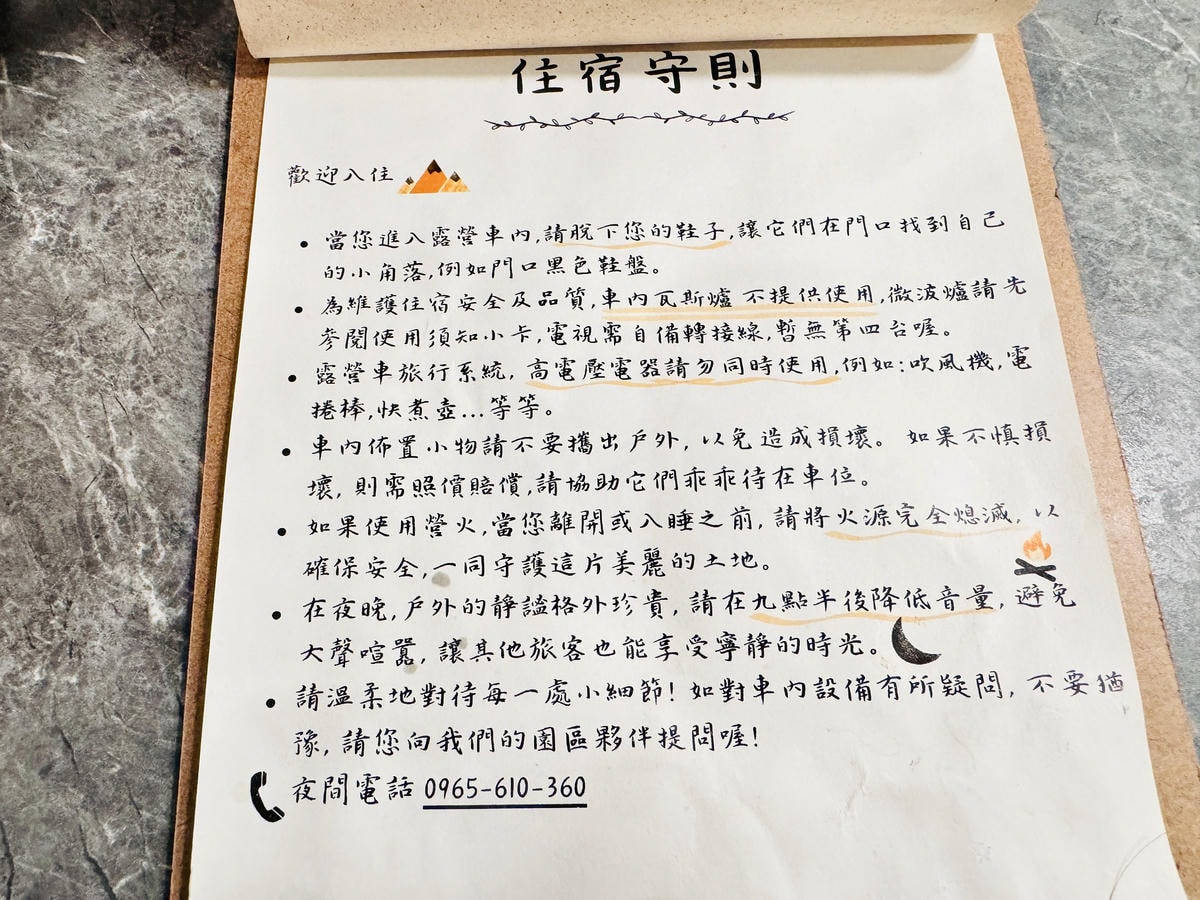 住宿守則
歡迎入住
• 當您進入露營車內,請脫下您的鞋子,讓它們在門口找到自己
的小角落,例如門口黑色鞋盤。
• 為維護住宿安全及品質,車內瓦斯爐 不提供使用,微波爐請先
參閱使用須知小卡,電視需自備轉接線,暫無第四台喔。
• 露營車旅行系統, 高電壓電器請勿同時使用,例如:吹風機,電
捲棒,快煮壺...等等。
• 車內佈置小物請不要攜出戶外, 以免造成損壞。 如果不慎損
壞, 則需照價賠償,請協助它們乖乖待在車位。
• 如果使用營火,當您離開或入睡之前, 請將火源完全熄滅, 以
確保安全,一同守護這片美麗的土地。
• 在夜晚, 戶外的靜謐格外珍貴, 請在九點半後降低音量, 避免
大聲喧囂, 讓其他旅客也能享受寧靜的時光。
• 請溫柔地對待每一處小細節! 如對車內設備有所疑問, 不要猶
豫, 請您向我們的園區夥伴提問喔!
夜間電話 0965-610-360